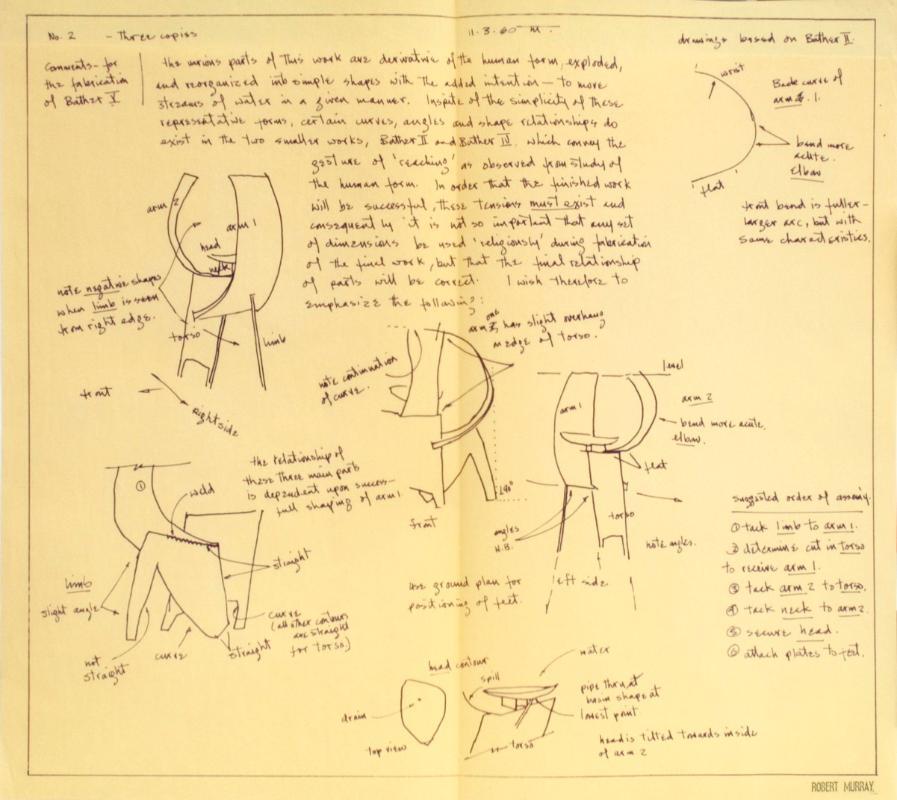 No. 2 - Three copies
11.3.60 M.
drawings based on Bather II.
Comments - for
the fabrication
of Bather V
the various parts of this work are derivative of the human form, exploded,
and reorganized into simple shapes with the added intention - to move
streams of water in a given manner. Inspite of the simplicity of these
representative forms, certain curves, angles and shape relationships do
exist in the two smaller works, Bather II and Bather IV. which convey the
gesture of 'reaching' as observed from study of
the human form. In order that the finished work
will be successful, these tensions must exist and
consequently it is not so important that any set
of dimensions be used 'religiously' during fabrication
of the final work, but that the final relationship
of parts will be correct. I wish therefore to
emphasize the following:
wrist
Back curve of
arm 1.
bend more
acute.
elbow
flat
front bend is fuller -
larger arc, but with
same characteristics.
arm 2
arm 1
head
neck
note negative shapes
when limb is seen
from right edge.
torso
limb
front
right side
one
arm has slight overhang
on edge of torso.
note continuation
of curve.
90°
front
level
arm 1
arm 2
bend more acute.
elbow.
flat
torso
angles
N.B.
note angles.
left side
the relationship of
these three main parts
is dependent upon success-
full shaping of arm 1.
1
weld
straight
limb
slight angle
not
straight
curve
straight
curve
(all other contours
are straight
for torso.)
use ground plan for
positioning of feet.
suggested order of assembly.
① tack limb to arm 1.
② determine cut in torso
to receive arm 1.
③ tack arm 2 to torso.
④ tack neck to arm 2.
⑤ secure head.
⑥ attach plates to feet.
head contour
drain
top view
spill
water
pipe thru at
basin shape at
lowest point
torso
head is tilted towards inside
of arm 2
ROBERT MURRAY